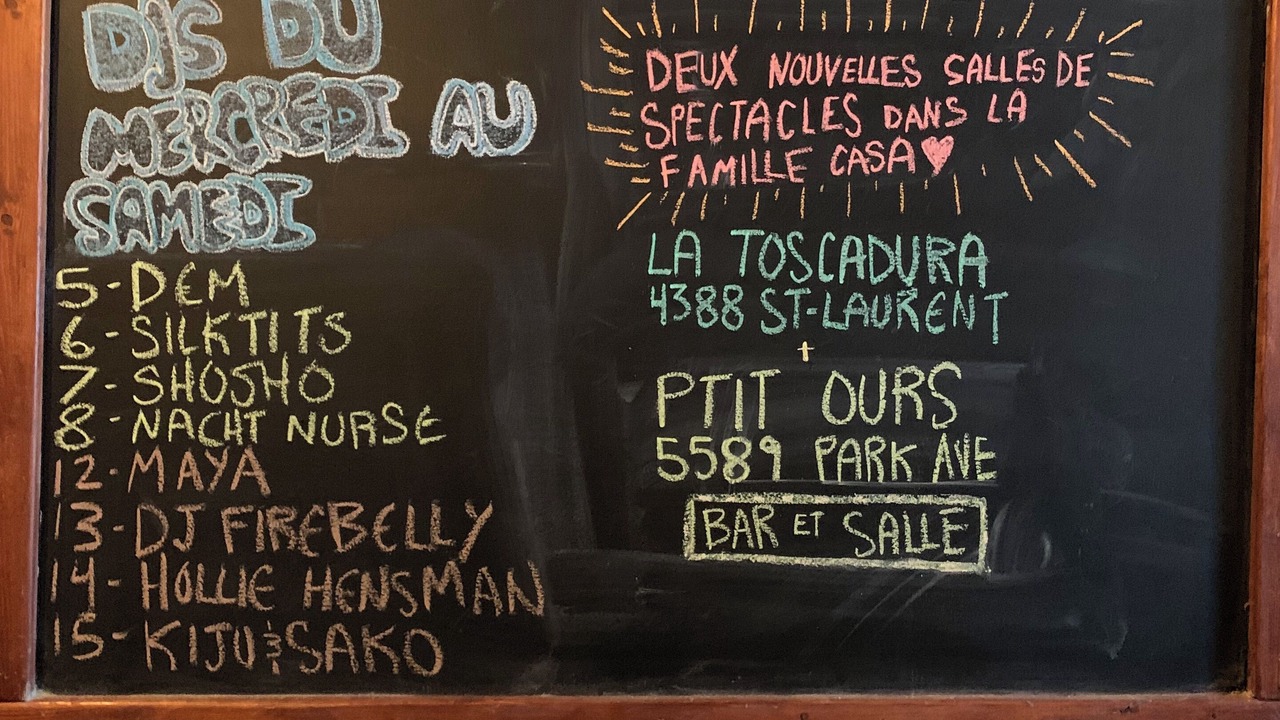 DJS DU
MERCREDI AU
SAMEDI
5-DEM
6-SILKTITS
7-SHOSHO
8-NACHT NURSE
12-MAYA
13-DJ FIREBELLY
14-HOLLIE HENSMAN
15-KIJU & SAKO
DEUX NOUVELLES SALLES DE
SPECTACLES DANS LA
FAMILLE CASA ♥
LA TOSCADURA
4388 ST-LAURENT
+
PTIT OURS
5589 PARK AVE
BAR ET SALLE